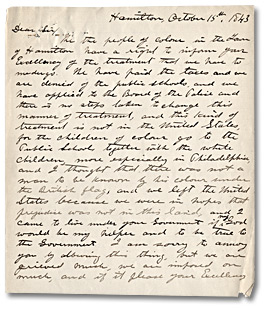 Hamilton, October 15th, 1843
Dear Sir,
We the people of colour in the Town
of Hamilton have a right to inform your
Excellency of the treatment that we have to
undergo. We have paid the taxes and we
are denied of the public schools, and we
have applied to the Board of the Police and
there is no steps taken to change this
manner of treatment, and this kind of
treatment is not in the United States,
for the children of colour go to the
Public Schools together with the white
children, more especially in Philadelphia,
and I thought that there was not a
man to be known by his colour under
the British flag, and we left the United
States because we were in hopes that
prejudice was not in this land, and I
came to live under your Government if God
would be my helper and to be true to
the Government. I am sorry to annoy
you by allowing this thing, but we are
grieved much, we are imposed on
much, and if it please your Excellency